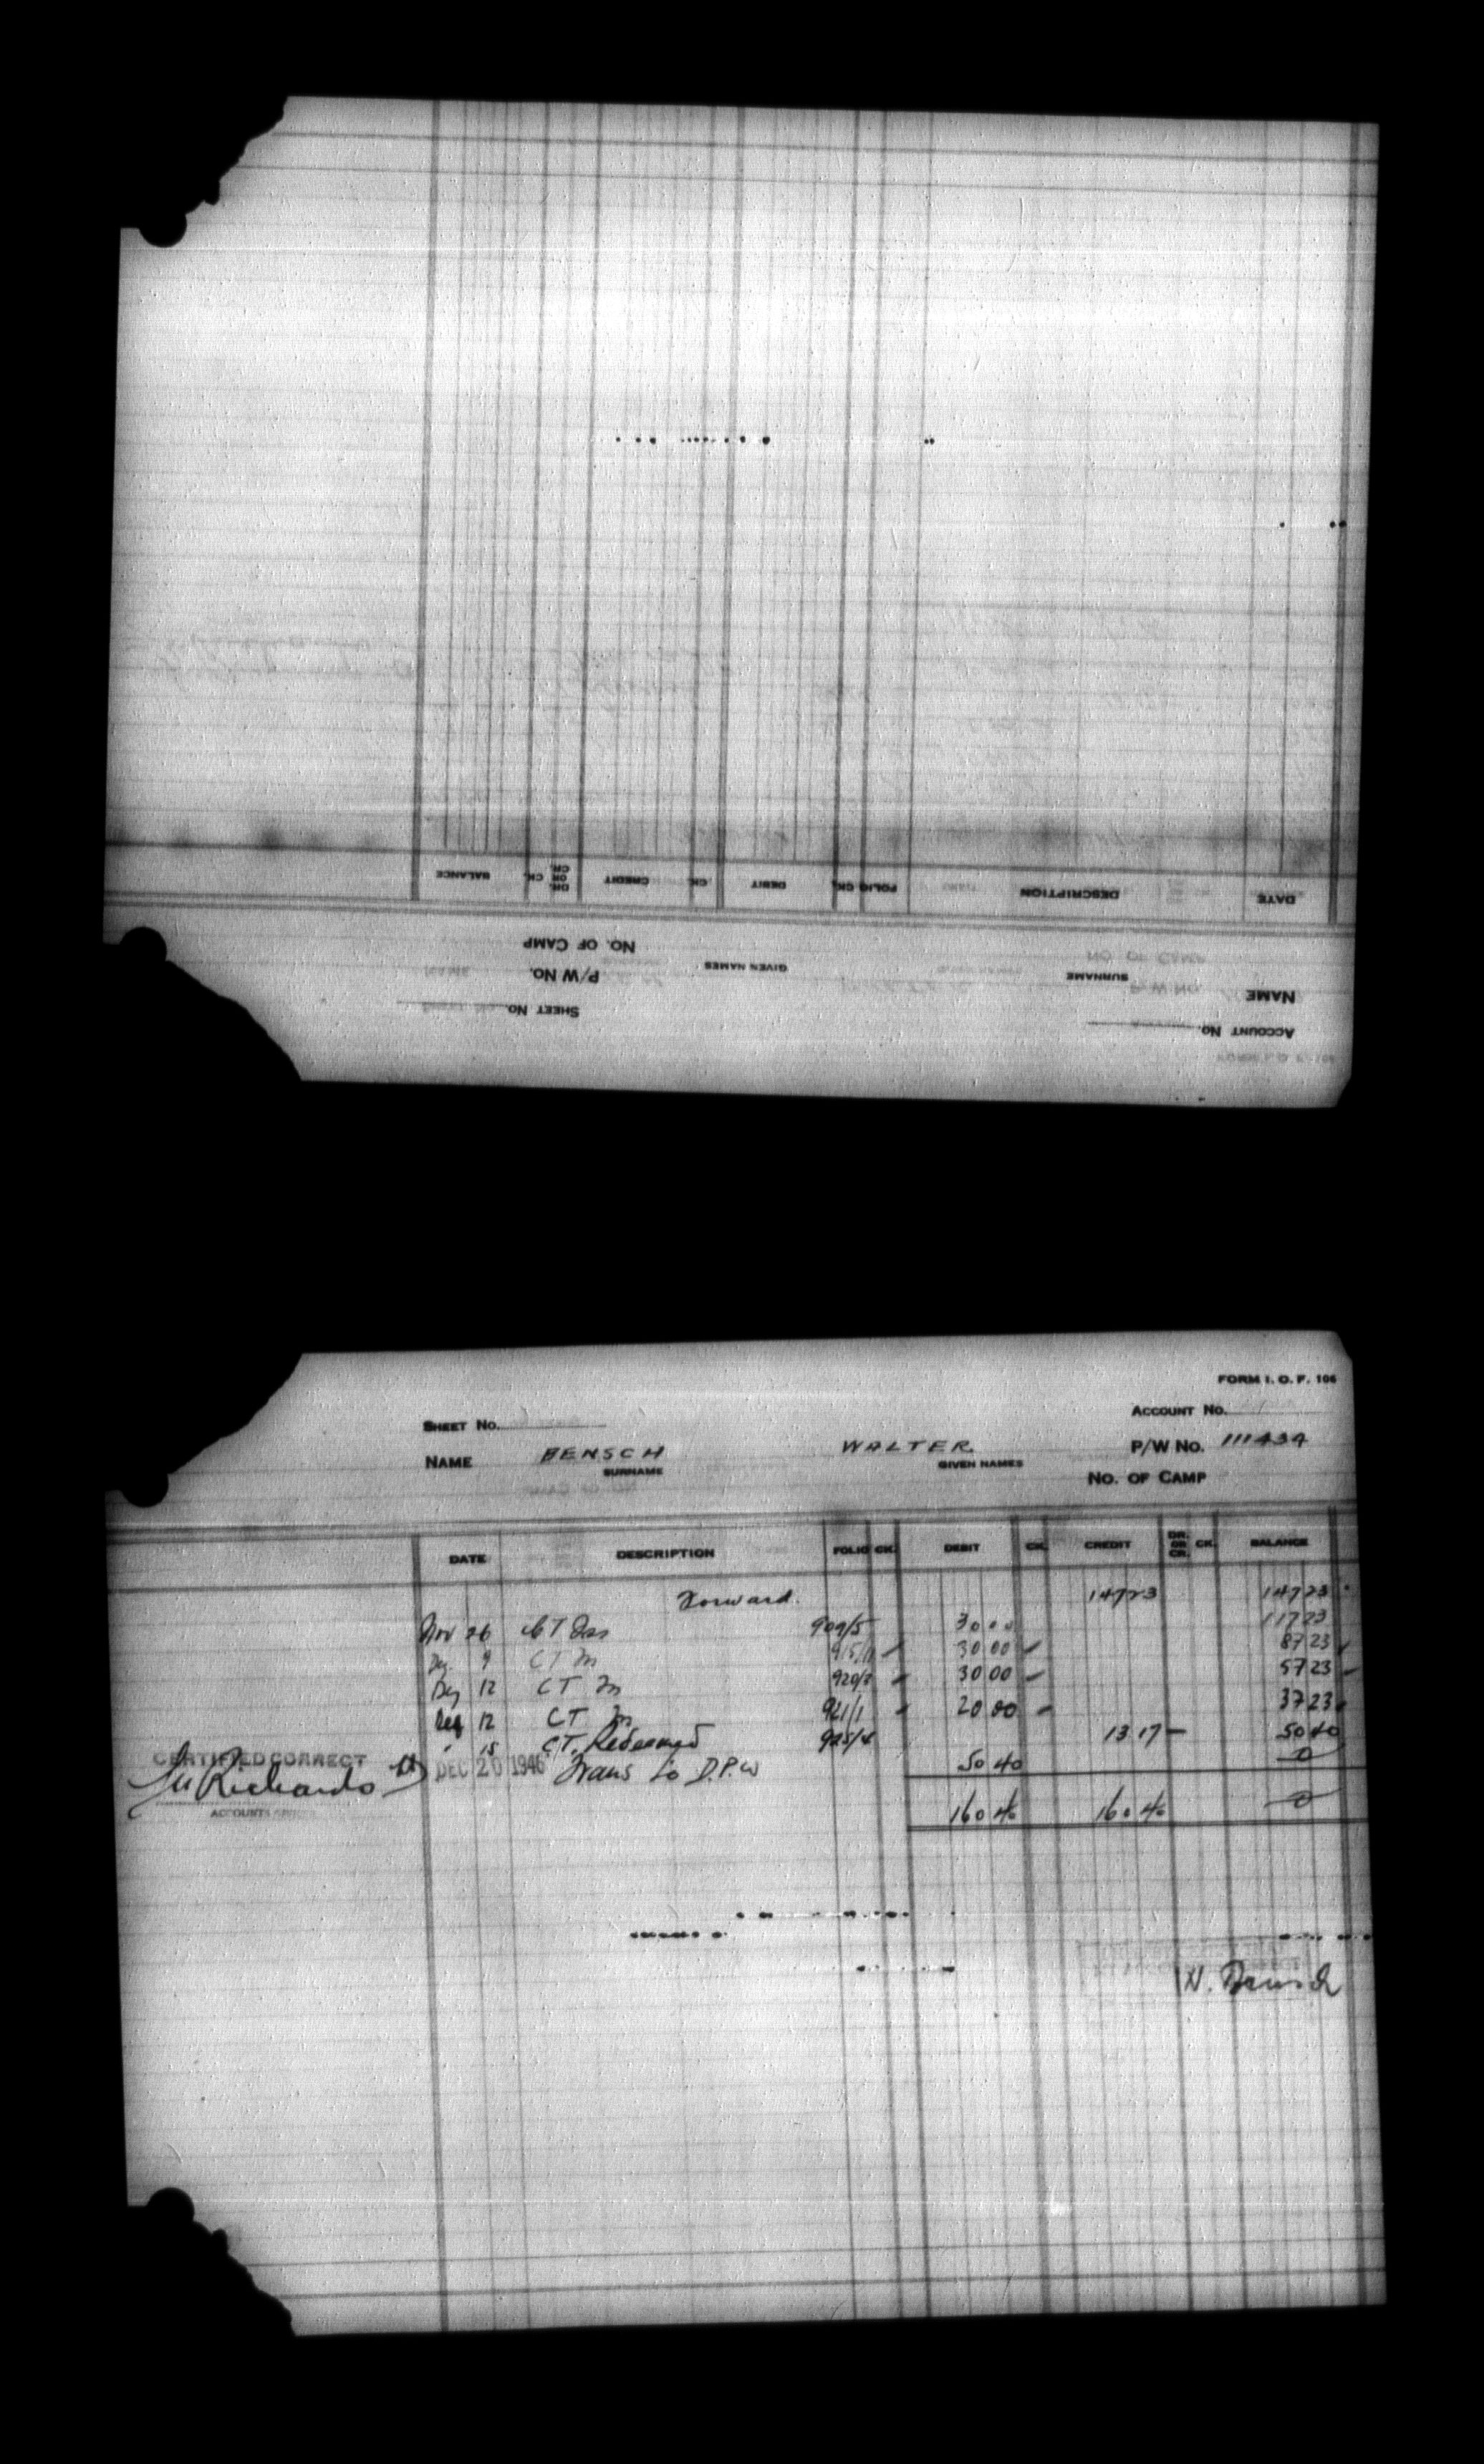 DATE DESCRIPTION FOLIO CK. DEBIT CK. CREDIT DR. OR CR. CK. BALANCE
NAME SURNAME GIVEN NAMES P/W NO. NO. OF CAMP
ACCOUNT NO. SHEET NO.
FORM I. O. F. 106
SHEET NO. ACCOUNT NO.
NAME BENSCH WALTER P/W NO. 111434
SURNAME GIVEN NAMES
NO. OF CAMP
DATE DESCRIPTION FOLIO CK. DEBIT CK. CREDIT DR. OR CR. CK. BALANCE
Forward. 147 23 147 23
Nov 26 CT 909/5 30 00 117 23
9 CT 915/11 30 00 87 23
12 CT 920/2 30 00 57 23
12 CT 921/1 20 00 37 23
" 15 CT. Redeemed 925/4 13 17 50 40
CERTIFIED CORRECT DEC 20 1946 Trans to D.P.W 50 40 0
Richards
ACCOUNTS
160 40 160 40 0
W. Bensch